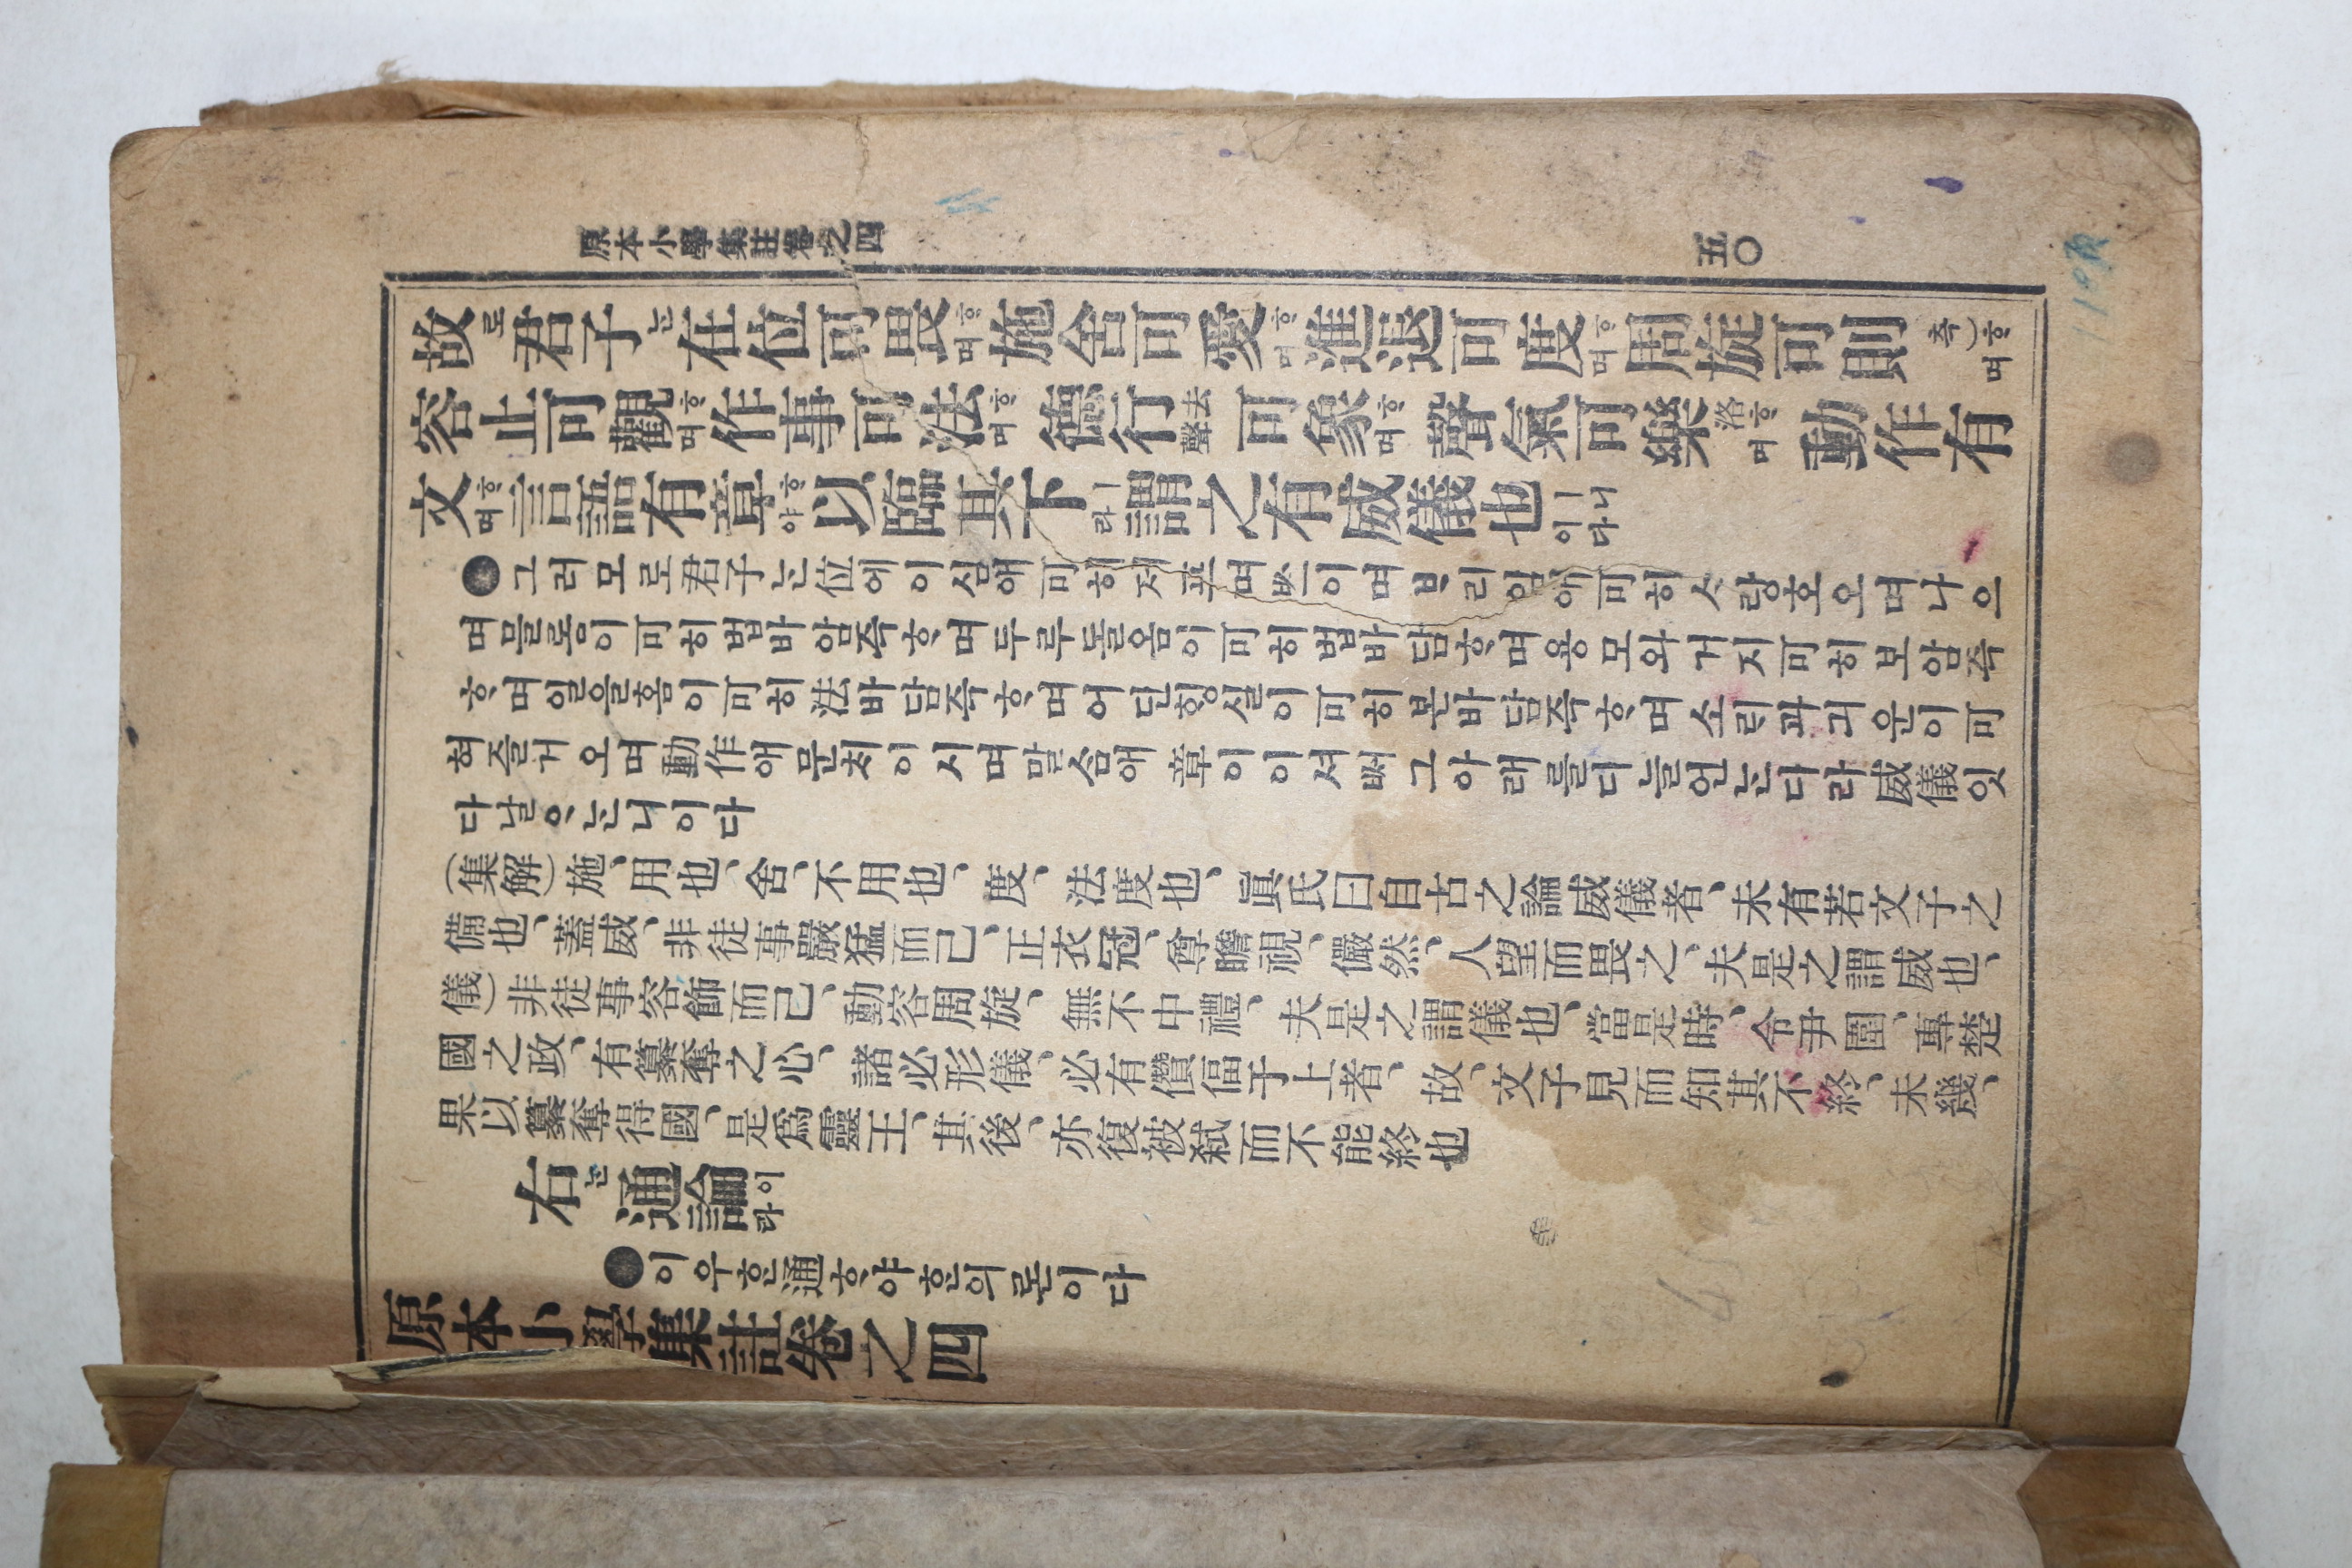 原本小學集註卷之四
五〇
故로君子ᄂᆞᆫ在位可畏ᄒᆞ며施舍可愛ᄒᆞ며進退可度ᄒᆞ며周旋可則측)ᄒᆞ며
容止可觀ᄒᆞ며作事可法ᄒᆞ며德行去聲可象ᄒᆞ며聲氣可樂洛ᄒᆞ며動作有
文ᄒᆞ며言語有章ᄒᆞ야以臨其下ㅣ라謂之有威儀也ㅣ니이다
●그러모로君子ᄂᆞᆫ位에이심애可히저프며ᄡᅳ이며ᄇᆞ리임애可히ᄉᆞ랑호오며나으
며믈롬이可히법바암즉ᄒᆞ며두루돌옴이可히법바담ᄒᆞ며용모와거지可히보암즉
ᄒᆞ며일을홈이可히法바담즉ᄒᆞ며어딘ᄒᆡᆼ실이可히본바담즉ᄒᆞ며소ᄅᆡ과긔운이可
혀즐거오며動作애문치이시며말ᄉᆞᆷ애章이이셔ᄡᅥ그아래를디늘언ᄂᆞᆫ디라威儀잇
다날ᄋᆞᄂᆞ니이다
(集解)施、用也、舍、不用也、度、法度也、眞氏曰自古之論威儀者、未有若文子之
備也、蓋威、非徒事嚴猛而己、正衣冠、尊瞻視、儼然、人望而畏之、夫是之謂威也、
儀)非徒事容飾而己、動容周旋、無不中禮、夫是之謂儀也、當是時、令尹圍、專楚
國之政、有簒奪之心、諸必形儀、必有儹偪于上者、故、文子見而知其不終、未幾、
果以簒奪得國、是爲靈王、其後、亦復被弒而不能終也
右ᄂᆞᆫ通論이라
●이우ᄒᆞᆫ通ᄒᆞ야ᄒᆞᆫ의론이다
原本小學集註卷之四
110頁